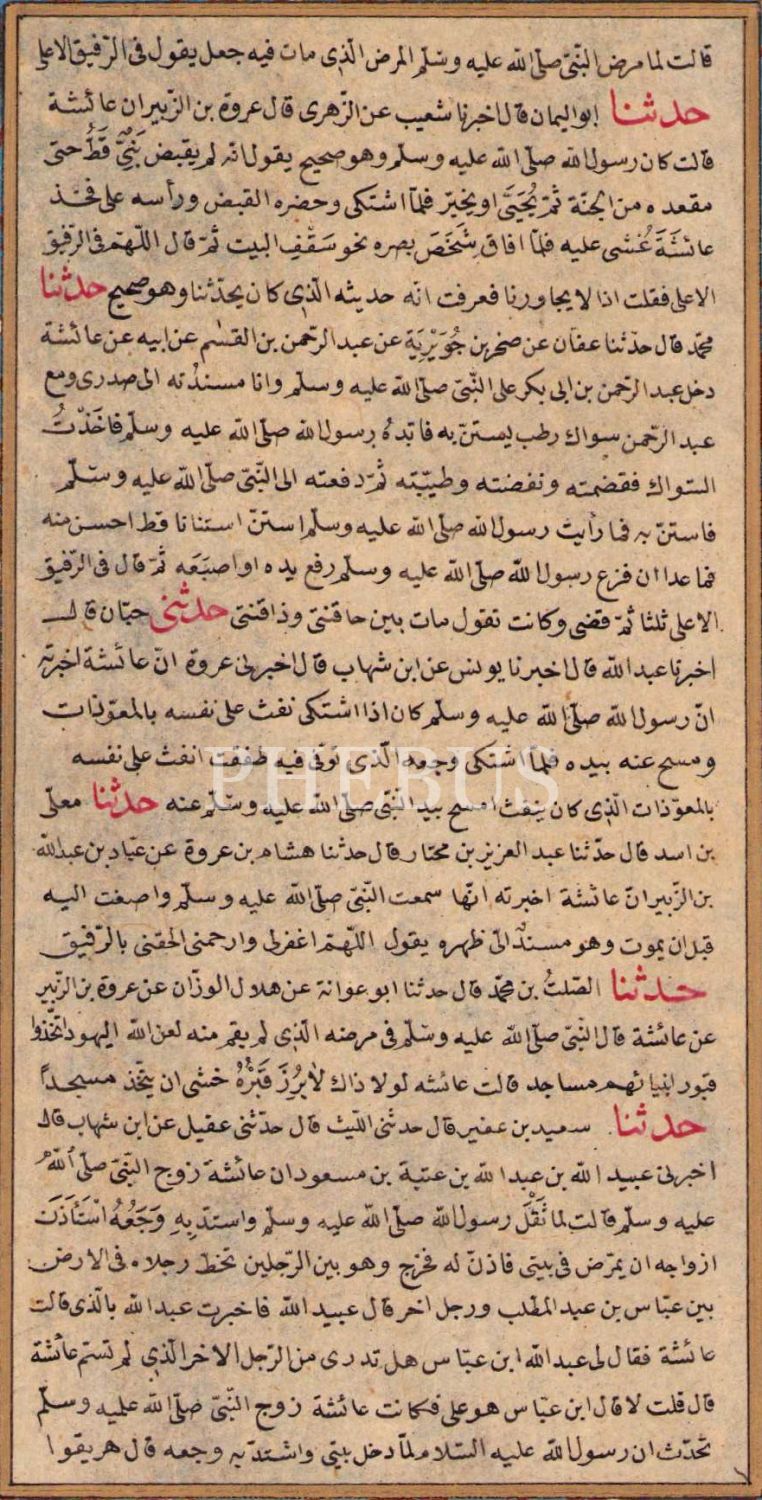 قالت لما مرض النّبیّ صلّی الله علیه وسلّم المرض الّذی مات فیه جعل یقول فی الرّفیق الاعلی
حدثنا ابو الیمان قال اخبرنا شعیب عن الزّهری قال عروة بن الزّبیر ان عائشة
قالت کان رسول الله صلّی الله علیه وسلّم وهو صحیح یقول انّه لم یقبض نَبِیٌّ قَطُّ حتی
مقعده من الجنّة ثمّ یُحَیَّی او یخیّر فلمّا اشتکی وحضره القبض ورأسه علی فخذ
عائشَةَ غُشی علیه فلمّا افاق شَخَصَ بصره نحو سَقْفِ البیت ثمّ قال اللّهمّ فی الرّفیق
الاعلی فقلت اذا لا یجاورنا فعرفت انّه حدیثه الّذی کان یحدّثنا وهو صحیح حدثنا
محمّد قال حدّثنا عفان عن صخر بن جُوَیْرِیَة عن عبد الرّحمن بن القسٰم عن ابیه عن عائشة
دخل عبد الرّحمن بن ابی بکر علی النّبیّ صلّی الله علیه وسلّم وانا مسندْته الی صدری ومع
عبد الرّحمن سواك رطب یستنّ به فابّدهُ رسول الله صلّی الله علیه وسلّم فاخَذْتُ
السّواك فقضمته ونفضته وطیّبته ثمّ دفعته الی النّبیّ صلّی الله علیه وسلّم
فاستنّ به فما رأیت رسول الله صلّی الله علیه وسلّم استنّ استنانا قط احسن منه
فما عدا ان فرغ رسول الله صلّی الله علیه وسلّم رفع یده او اصبَعَه ثمّ قال فی الرّفیق
الاعلی ثلثا ثمّ قضی وکانت تقول مات بین حاقنتی وذاقنتی حدثنی حبّان قال
اخبرنا عبد الله قال اخبرنا یونس عن ابن شهاب قال اخبرنی عروة انّ عائشة اخبرته
انّ رسول الله صلّی الله علیه وسلّم کان اذا اشتکی نفث علی نفسه بالمعوّذات
ومسح عنه بیده فلمّا اشتکی وجعه الّذی توفی فیه طفقت انفث علی نفسه
بالمعوّذات الّذی کان ینفث امسح بید النّبیّ صلّی الله علیه وسلّم عنه حدثنا معلّی
بن اسد قال حدّثنا عبد العزیز بن مختار قال حدثنا هشام بن عروة عن عبّاد بن عبد الله
بن الزّبیر انّ عائشة اخبرته انّها سمعت النّبیّ صلّی الله علیه وسلّم واصغت الیه
قبل ان یموت وهو مسندٌ الیّ ظهره یقول اللّهمّ اغفرلی وارحمنی الحقنی بالرّفیق
حدثنا الصّلتُ بن محمّد قال حدثنا ابو عوانة عن هلال الوزّان عن عروة بن الزّبیر
عن عائشة قال النّبیّ صلّی الله علیه وسلّم فی مرضه الّذی لم یقم منه لعن الله الیهود اتّخذوا
قبور انبیائهم مساجد قالت عائشه لولا ذاك لَابُرِزَ قَبْرُهُ خشی ان یتّخذ مسجداً
حدثنا سعید بن عفیر قال حدثنی اللّیث قال حدّثنی عقیل عن ابن شهاب قال
اخبرنی عبید الله بن عبد الله بن عتبة بن مسعود ان عائشة زوج النّبیّ صلّی اللّٰهُ
علیه وسلّم قالت لما ثَقُلَ رسول الله صلّی الله علیه وسلّم واستدّ بِهِ وَجَعُهُ اسْتَأذَنَ
ازواجه ان یمرّض فی بیتی فاذنّ له فخرج وهو بین الرّجلین تخطّ رجلاه فی الارض
بین عبّاس بن عبد المطّلب ورجل اخر قال عبید الله فاخبرت عبد الله بالّذی قالت
عائشة فقال لی عبد الله ابن عبّاس هل تدری من الرّجل الاخر الّذی لم تسمّ عائشة
قال قلت لا قال ابن عبّاس هو علی فکانت عائشة زوج النّبیّ صلّی الله علیه وسلّم
تحدّث ان رسول الله علیه السّلام لمّا دخل بیتی واشتدّ به وجعه قال هریقوا
PHEBUS